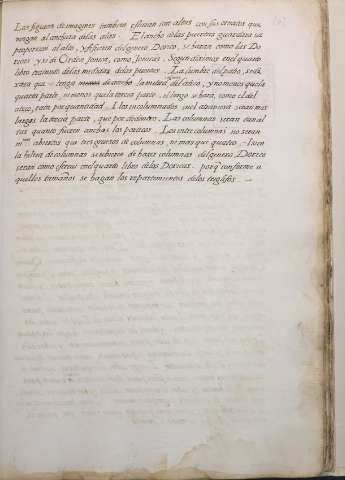 Las figuras de imagines tambien estaran con altos con sus ornatos que
vengan al anchura delas alas. El ancho delas puertas guardara su
proporcion al alto, y si fueren del genero Dorico, se haran como las Do-
ricas, y si de Orden Ionica, como Ionicas. Segun diximos enel quarto
libro tratando delas medidas delas puertas. La lumbre del patio, se de-
xara que tenga de ancho la mitad del atrio, y no menos que la
quarta parte, ni menos que la tercia parte. el largo se hara, como el del
atrio, rata por quantidad. Los incolumnados en el atravesia seran mas
largos la tercia parte, que por de dentro. Las columnas seran tan al
tas quanto fueren anchas las porticas. Los entre columnas no seran
mas abiertos que tres gruesos de columnas, ni mas que quatro. Si en
la hilera de columnas se ubieren de hazer columnas del genero Dorico
seran como estan enel quarto libro delas Doricas. porque conforme a
aquellos tamaños se hagan los repartimientos delos treglifos.